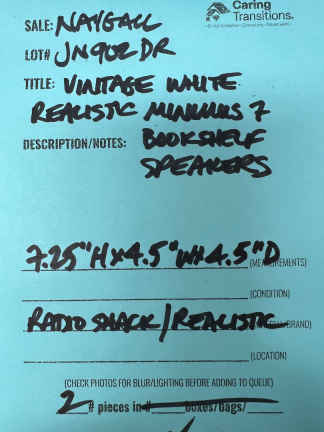 Caring
Transitions.
SALE: NAYGALL
LOT# JN902DR
TITLE: VINTAGE WHITE
REALISTIC MINIMUS 7
DESCRIPTION/NOTES: BOOKSHELF
SPEAKERS
7.25"H x 4.5"W x 4.5"D (MEASUREMENTS)
(CONDITION)
RADIO SHACK/REALISTIC BRAND)
(LOCATION)
(CHECK PHOTOS FOR BLUR/LIGHTING BEFORE ADDING TO QUEUE)
2 # pieces in # boxes/bags/